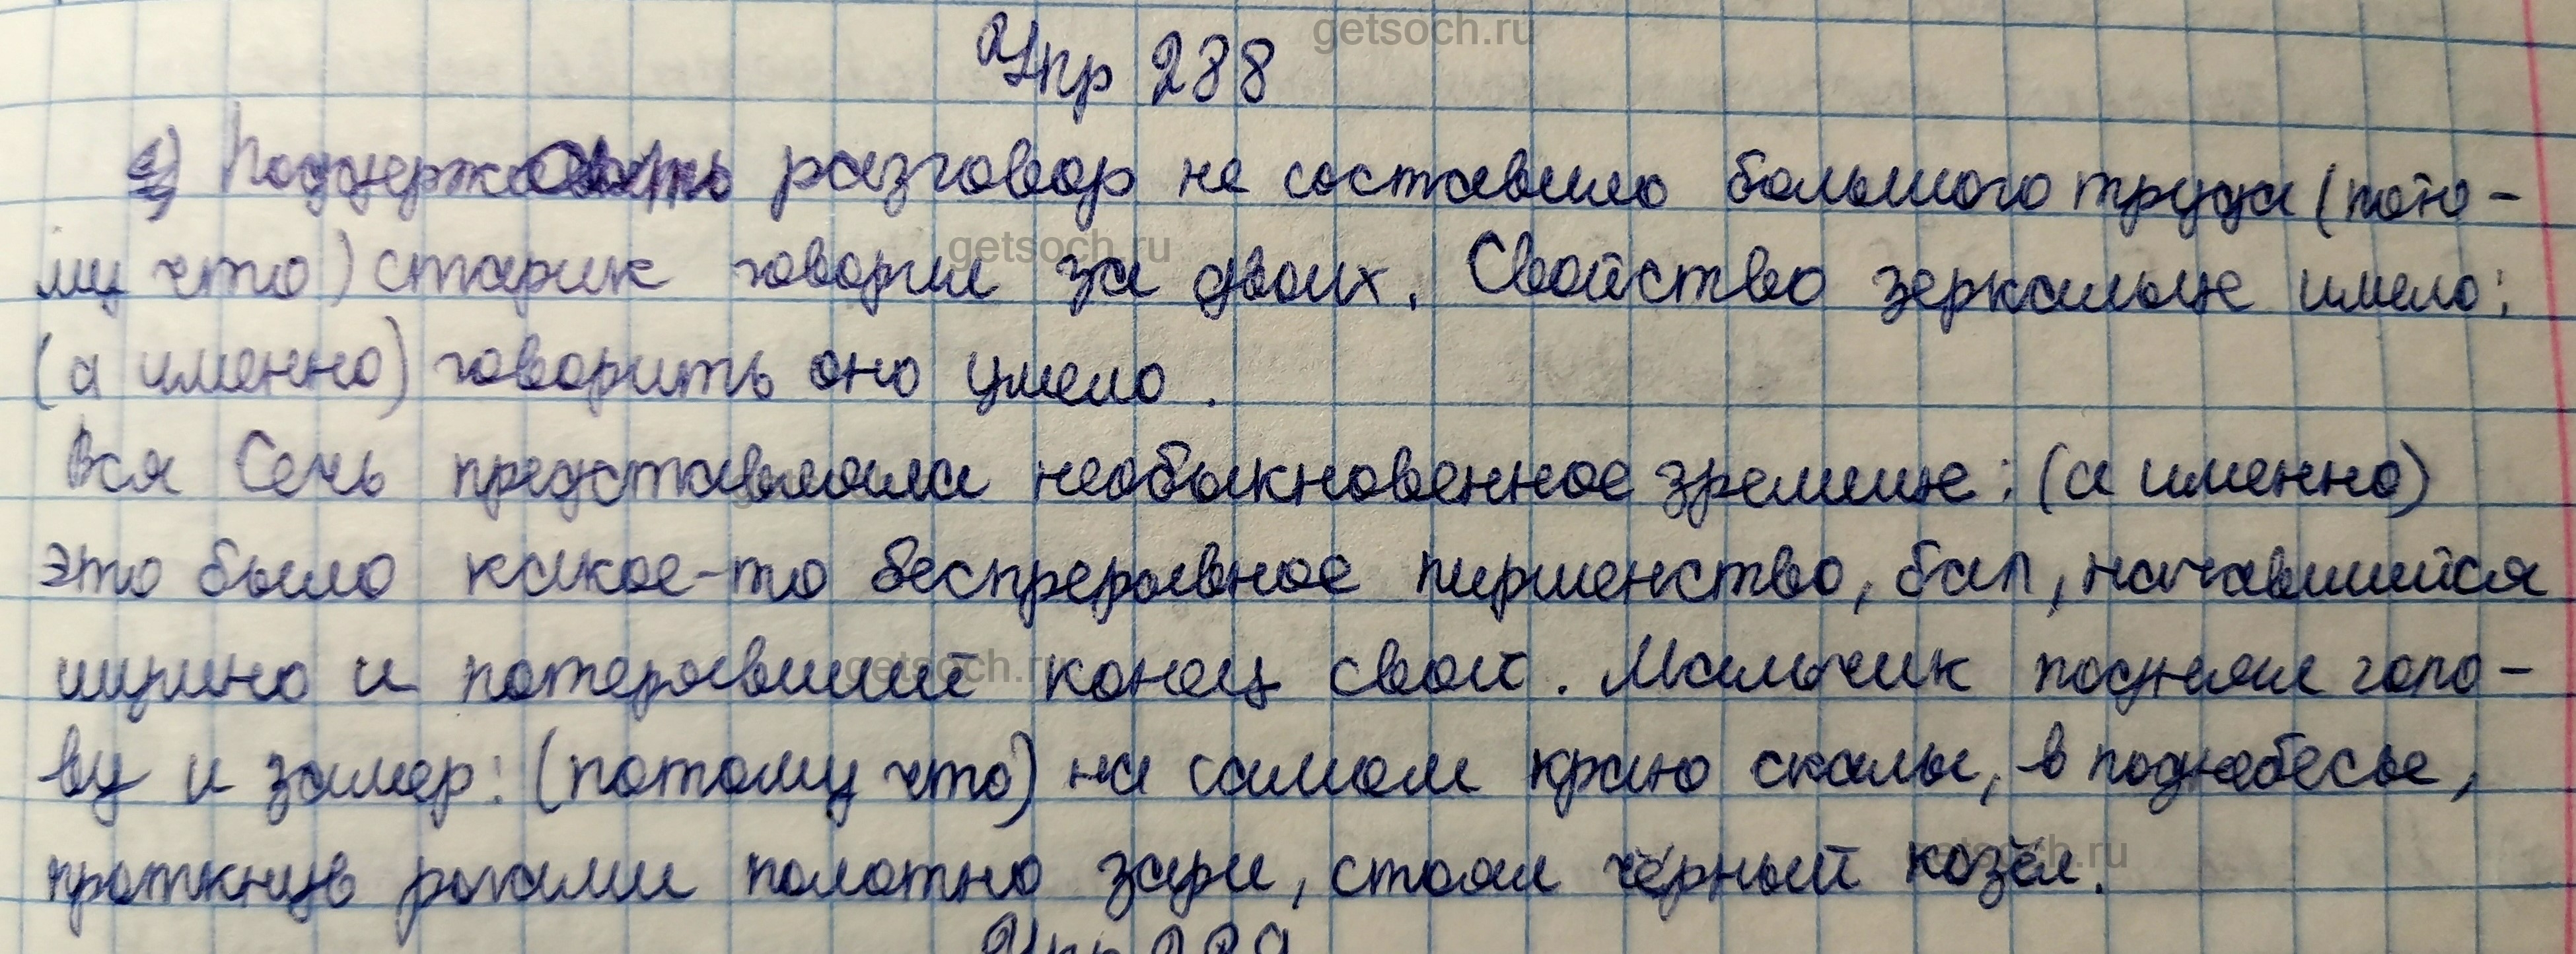 Упр 238
1) Поддержать разговор не составило большого труда (пото-
му что) старик говорил за двоих. Свойство зеркальце имело:
(а именно) говорить оно умело.
Вся Сечь представляла необыкновенное зрелище: (а именно)
это было какое-то беспрерывное пиршенство, бал, начавшийся
шумно и потерявший конец свой. Мальчик поднял голо-
ву и замер: (потому что) на самом краю скалы, в поднебесье,
проткнув рогами полотно зари, стоял чёрный козёл.
Упр 239
getsoch.ru
getsoch.ru
getsoch.ru
getsoch.ru